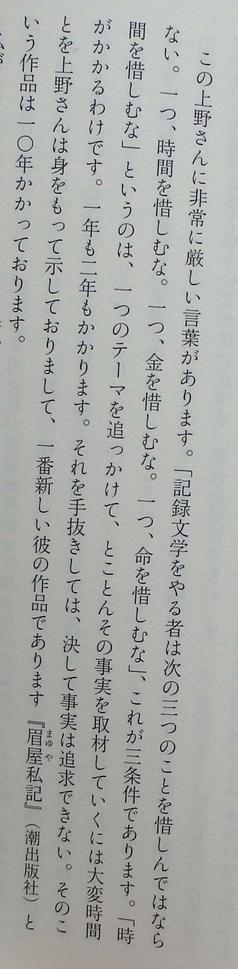 この上野さんに非常に厳しい言葉があります。「記録文学をやる者は次の三つのことを惜しんではなら
ない。一つ、時間を惜しむな。一つ、金を惜しむな。一つ、命を惜しむな」、これが三条件であります。「時
間を惜しむな」というのは、一つのテーマを追っかけて、とことんその事実を取材していくには大変時間
がかかるわけです。一年も二年もかかります。それを手抜きしては、決して事実は追求できない。そのこ
とを上野さんは身をもって示しておりまして、一番新しい彼の作品であります『眉屋私記』（潮出版社）と
いう作品は一〇年かかっております。